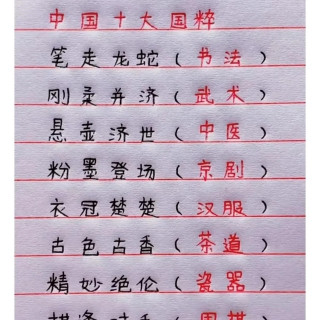 中国十大国粹
笔走龙蛇(书法)
刚柔并济(武术)
悬壶济世(中医)
粉墨登场(京剧)
衣冠楚楚(汉服)
古色古香(茶道)
精妙绝伦(瓷器)